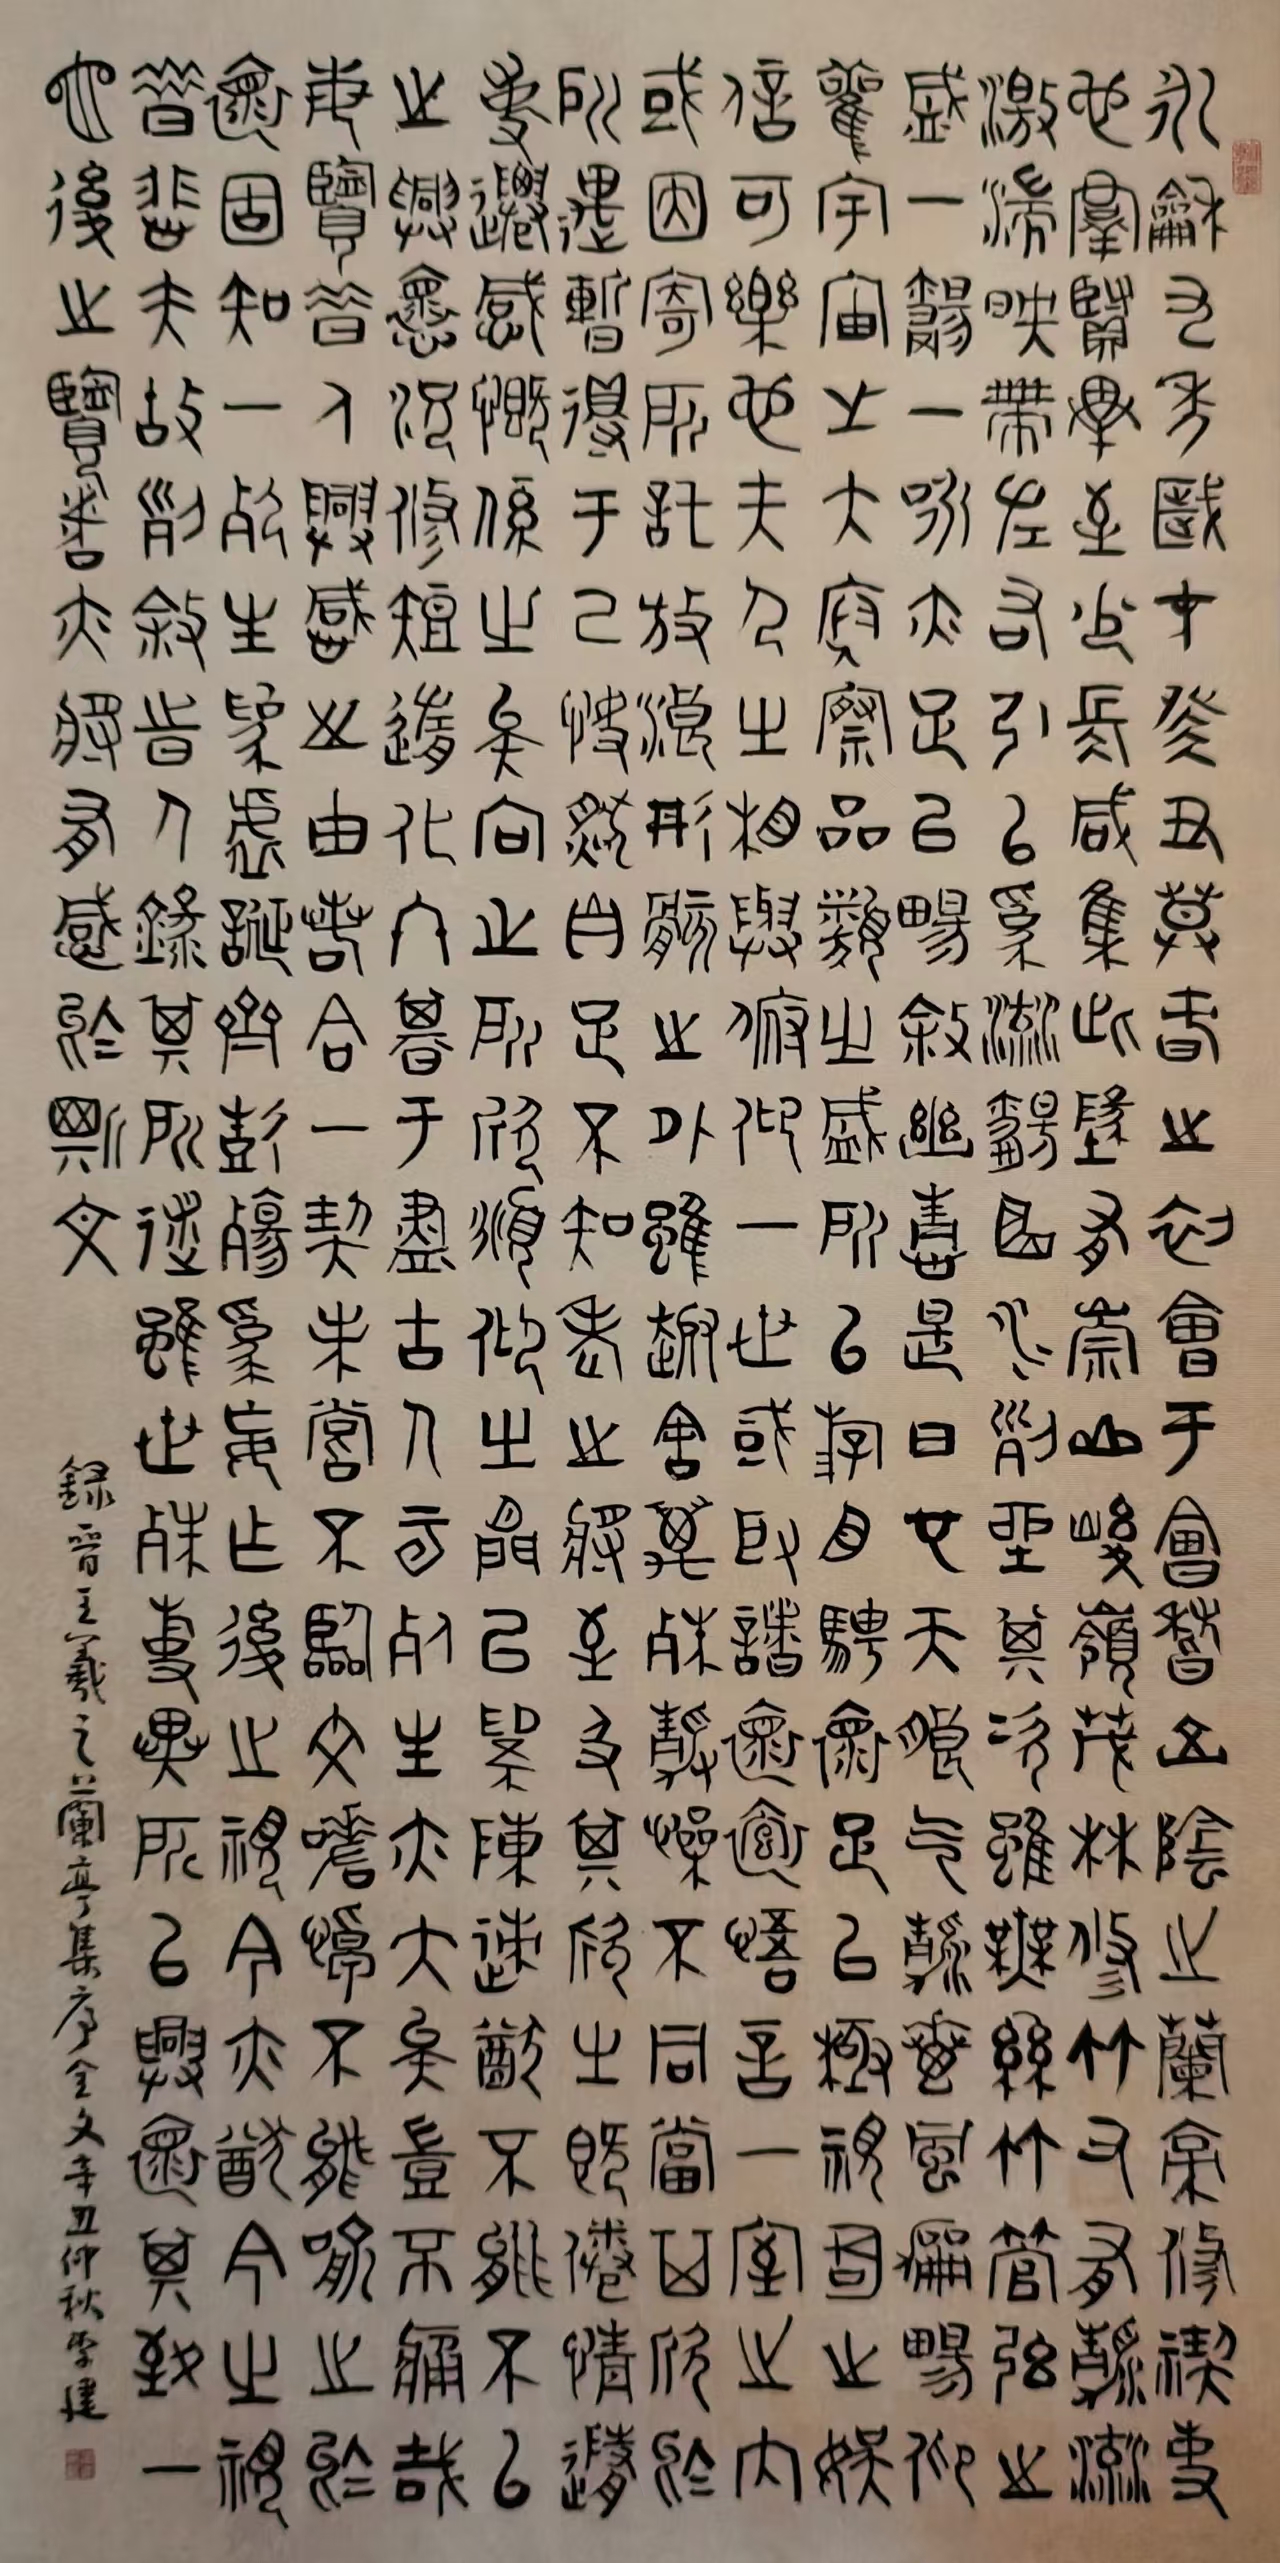 永龢九年歲在癸丑莫春之初會于會稽山陰之蘭亭修禊事
也群賢畢至少長咸集此地有崇山峻嶺茂林修竹又有清流
激湍映帶左右引以為流觴曲水列坐其次雖無絲竹管弦之
盛一觴一詠亦足以暢敘幽情是日也天朗氣清惠風和暢仰
觀宇宙之大俯察品類之盛所以游目騁懷足以極視聽之娛
信可樂也夫人之相與俯仰一世或取諸懷抱悟言一室之內
或因寄所託放浪形骸之外雖趣舍萬殊靜躁不同當其欣於
所遇暫得于己快然自足不知老之將至及其所之既倦情隨
事遷感慨係之矣向之所欣俛仰之間已為陳跡猶不能不以
之興懷況修短隨化終期于盡古人云死生亦大矣豈不痛哉
每覽昔人興感之由若合一契未嘗不臨文嗟悼不能喻之於
懷固知一死生為虛誕齊彭殤為妄作後之視今亦猶今之視
昔悲夫故列敘時人錄其所述雖世殊事異所以興懷其致一
也後之覽者亦將有感於斯文
錄晉王羲之蘭亭集序全文辛丑仲秋李建